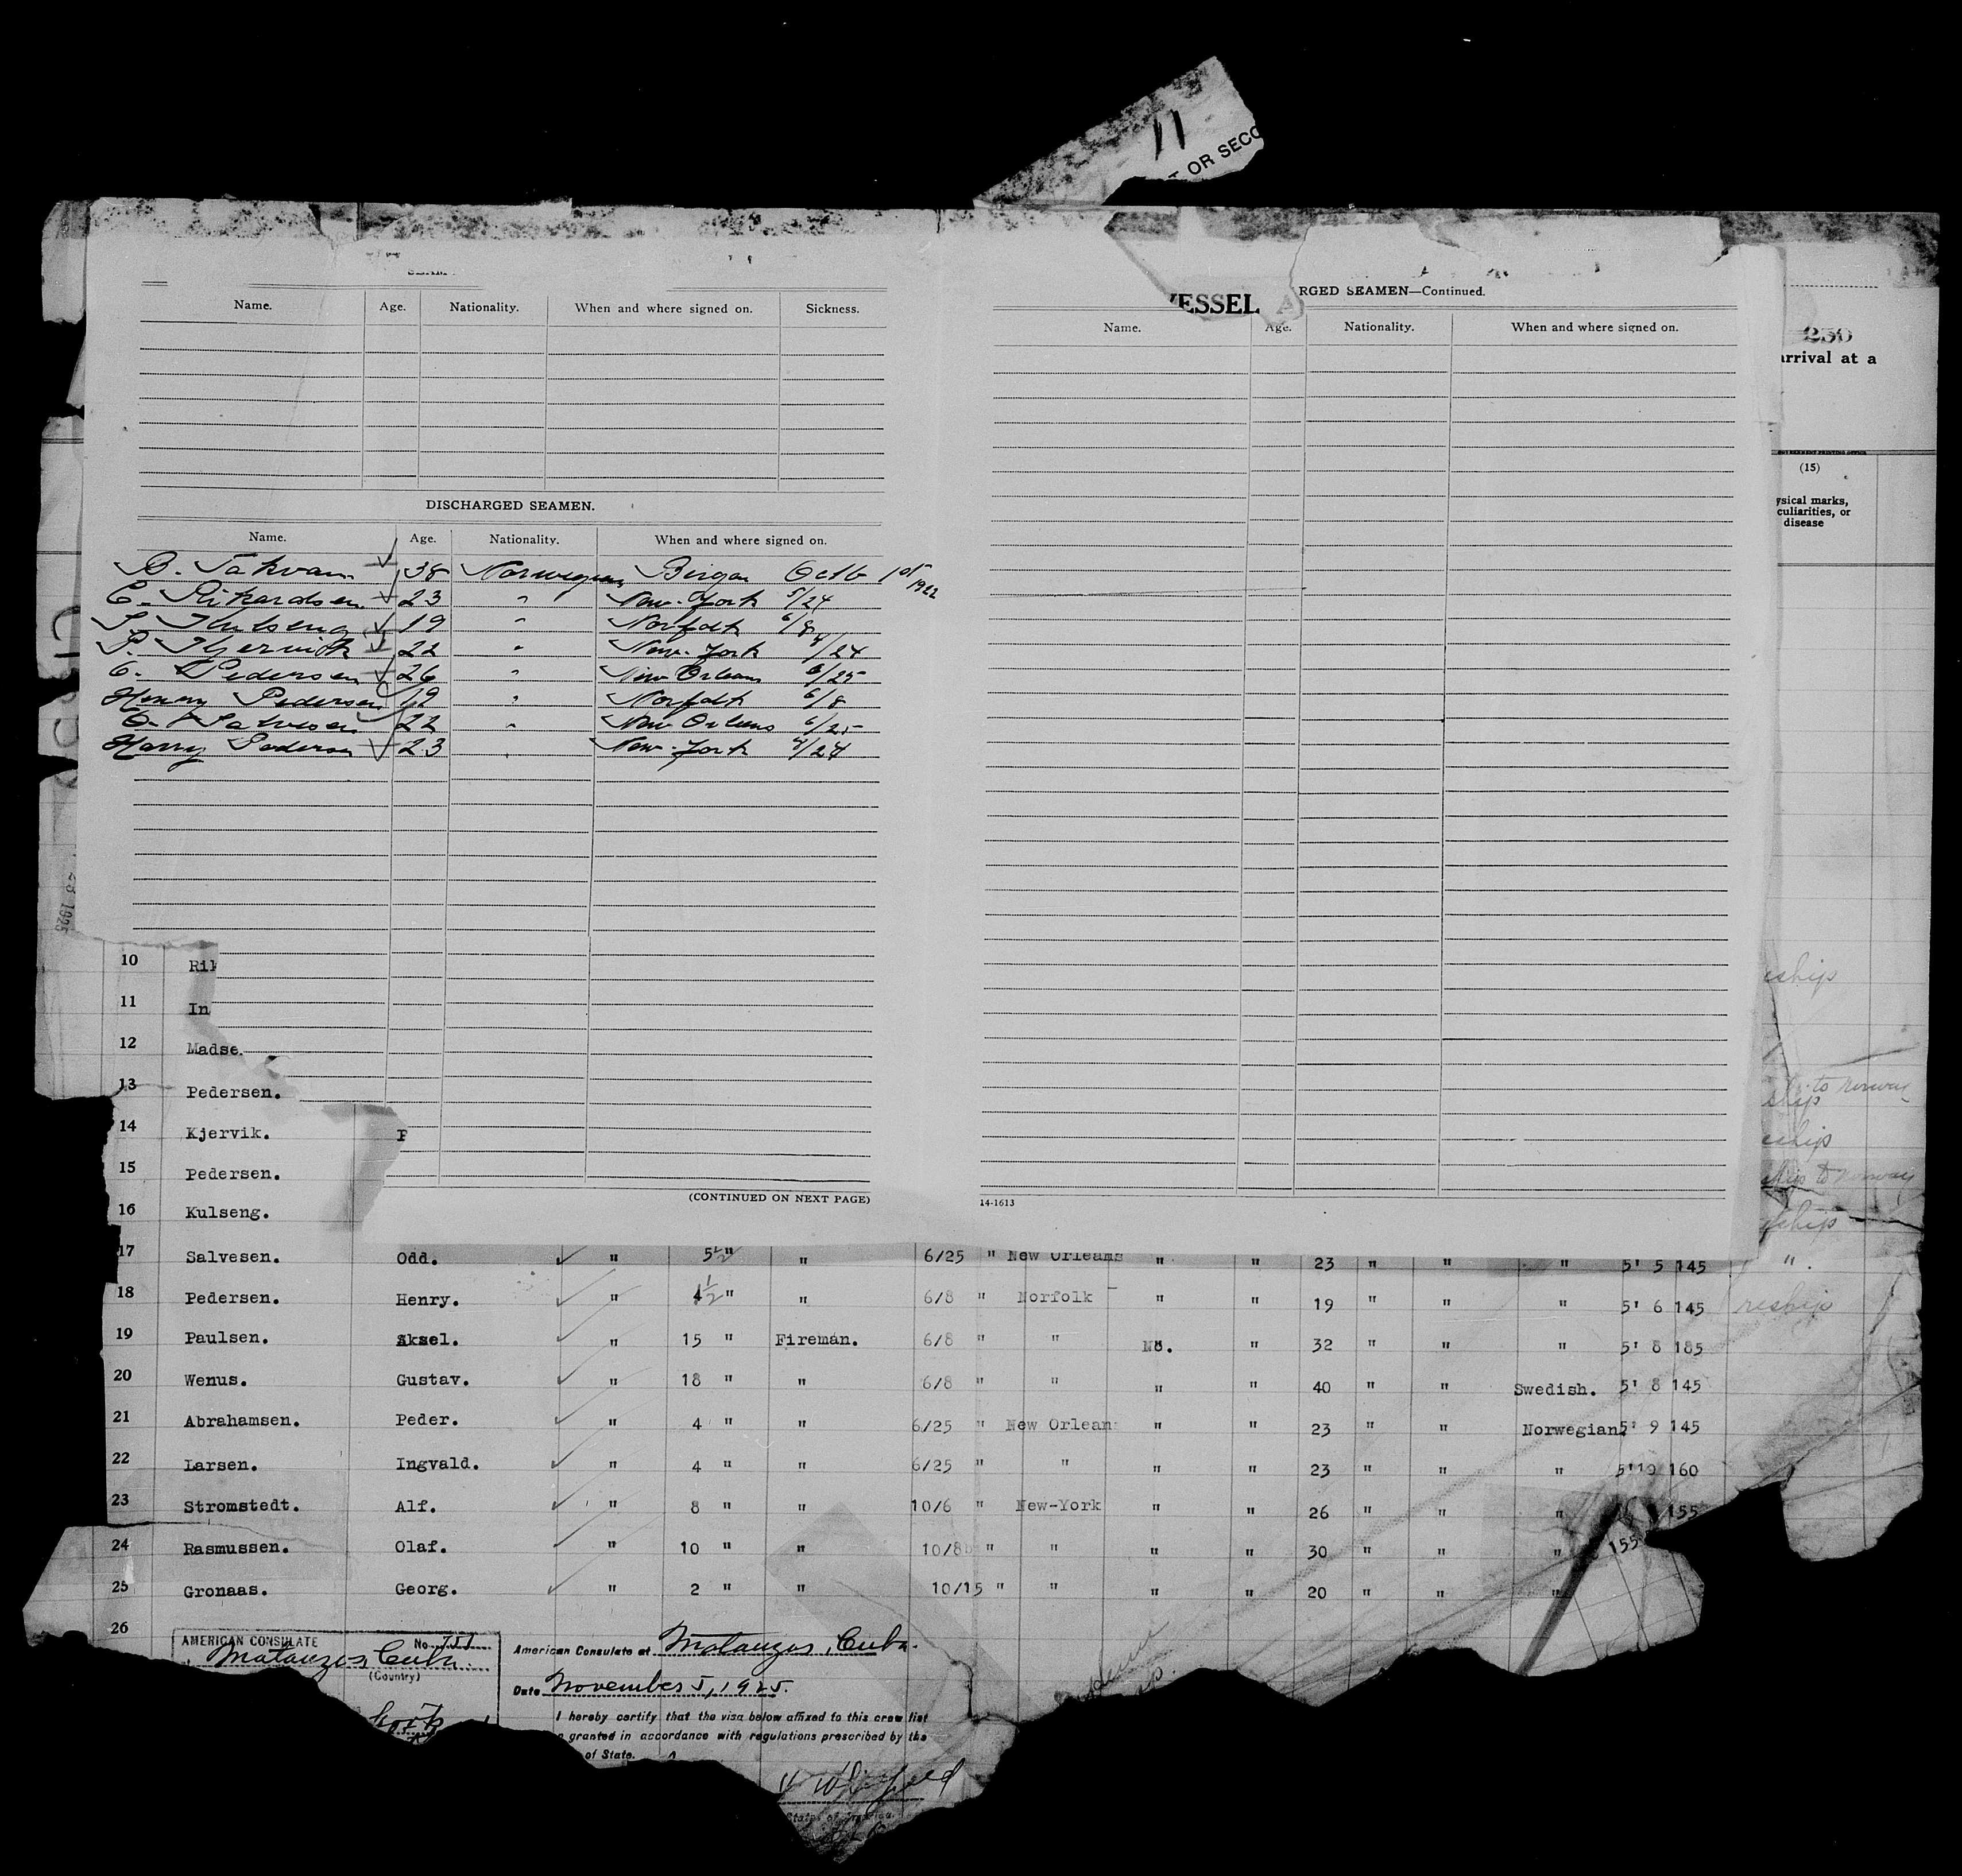 11
OR SECO
VESSEL A
RGED SEAMEN—Continued.
Name. Age. Nationality. When and where signed on. Sickness.
Name. Age. Nationality. When and where signed on.
230
arrival at a
(15)
ysical marks,
culiarities, or
disease
DISCHARGED SEAMEN.
Name. Age. Nationality. When and where signed on.
38 Norwegian Bergen Octb 1st 1922
C. Rikardsen 23 " New-York 5/24
19 " Norfolk 6/8
P. Kjervik 22 " New-York 4/24
C. Pedersen 26 " New Orleans 6/25
Henry Pedersen 19 " Norfolk 6/8
O. Salvesen 22 " New Orleans 6/25
Harry Pedersen 23 " New-York 4/24
1925
10 Ril
11 In
12 Madse
13 Pedersen.
to Norway
14 Kjervik. P
15 Pedersen.
to Norway
16 Kulseng.
(CONTINUED ON NEXT PAGE)
14-1613
17 Salvesen. Odd. " 5½ " " 6/25 " New Orleans " " 23 " " " 5' 5 145 ".
18 Pedersen. Henry. " 4½ " " 6/8 " Norfolk " " 19 " " " 5' 6 145 reship
19 Paulsen. Aksel. " 15 " Fireman. 6/8 " " No. " 32 " " " 5' 8 185
20 Wenus. Gustav. " 18 " " 6/8 " " " " 40 " " Swedish. 5' 8 145
21 Abrahamsen. Peder. " 4 " " 6/25 " New Orlean " " 23 " " Norwegian. 5' 9 145
22 Larsen. Ingvald. " 4 " " 6/25 " " " " 23 " " " 5'10 160
23 Stromstedt. Alf. " 8 " " 10/6 " New-York " " 26 " " " 155
24 Rasmussen. Olaf. " 10 " " 10/8 " " " " 30 " " " 155
25 Gronaas. Georg. " 2 " " 10/15 " " " " 20 " " "
26
AMERICAN CONSULATE No.
Matanzas, Cuba.
(Country)
American Consulate at Matanzas, Cuba.
Date November 5, 1925.
I hereby certify that the visa below affixed to this crew list
granted in accordance with regulations prescribed by the
of State.
States of America.